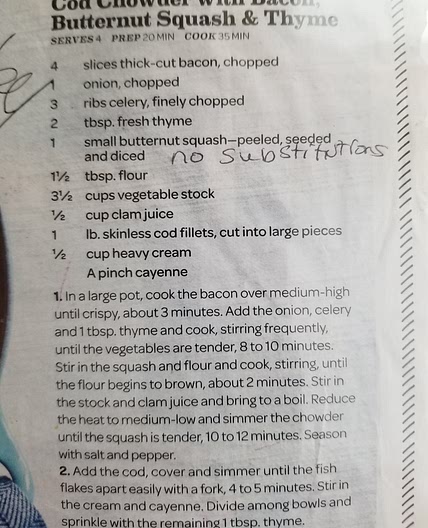 Cod Chowder with Bacon,
Butternut Squash & Thyme
SERVES 4 PREP 20 MIN COOK 35 MIN
4 slices thick-cut bacon, chopped
1 onion, chopped
3 ribs celery, finely chopped
2 tbsp. fresh thyme
1 small butternut squash—peeled, seeded
and diced no substitutions
1½ tbsp. flour
3½ cups vegetable stock
½ cup clam juice
1 lb. skinless cod fillets, cut into large pieces
½ cup heavy cream
A pinch cayenne
1. In a large pot, cook the bacon over medium-high
until crispy, about 3 minutes. Add the onion, celery
and 1 tbsp. thyme and cook, stirring frequently,
until the vegetables are tender, 8 to 10 minutes.
Stir in the squash and flour and cook, stirring, until
the flour begins to brown, about 2 minutes. Stir in
the stock and clam juice and bring to a boil. Reduce
the heat to medium-low and simmer the chowder
until the squash is tender, 10 to 12 minutes. Season
with salt and pepper.
2. Add the cod, cover and simmer until the fish
flakes apart easily with a fork, 4 to 5 minutes. Stir in
the cream and cayenne. Divide among bowls and
sprinkle with the remaining 1 tbsp. thyme.